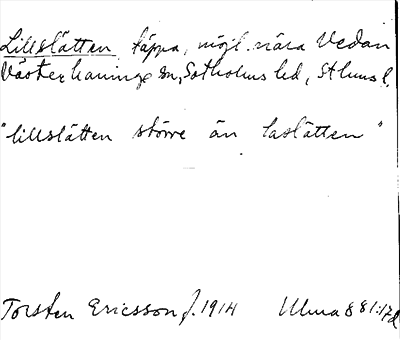 Lillslätten täppa, möjl. nära Vedan
Västerhaninge sn, Sotholms hd, Sthlms l.
"lillslätten större än laslätten"
Torsten Ericsson f. 1914 Ulma 881:17d